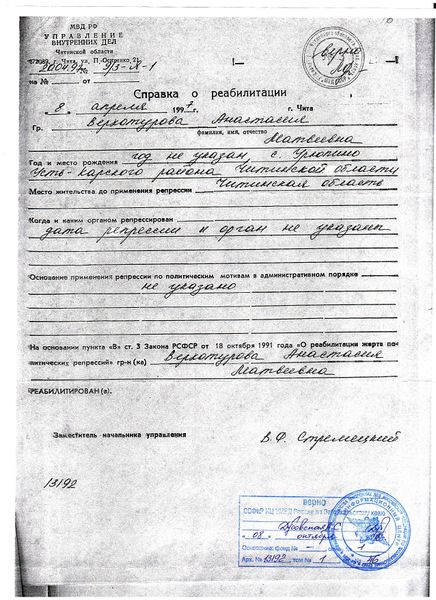 МВД РФ
УПРАВЛЕНИЕ
ВНУТРЕННИХ ДЕЛ
Читинской области
г. Чита, ул.
20.04.97
на № от
верно
Справка о реабилитации
8 апреля 1997 г. г. Чита
Гр. Верхотурова Анастасия
фамилия, имя, отчество
Матвеевна
Год и место рождения год не указан, с. Урюпино
Усть-Карского района Читинской области
Место жительства до применения репрессии Читинская область
Когда и каким органом репрессирован
дата репрессии и орган не указаны
Основание применения репрессии по политическим мотивам в административном порядке
не указано
На основании пункта «В» ст. 3 Закона РСФСР от 18 октября 1991 года «О реабилитации жертв по-
литических репрессий» гр-н (ка) Верхотурова Анастасия
Матвеевна
РЕАБИЛИТИРОВАН (а).
Заместитель начальника управления В.Ф. Стремецкий
13192
верно
ИЦ УМВД России по Забайкальскому краю
08 октября
Основание: фонд № – 1
Арх. № 13192, том № 1